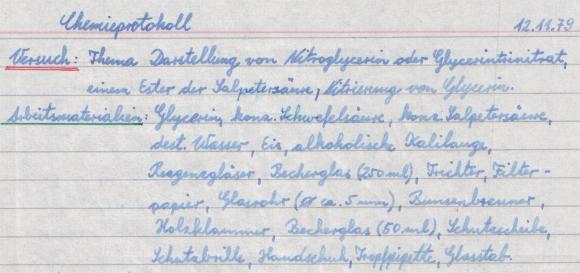 Chemieprotokoll 12.11.79
Versuch: Thema Darstellung von Nitroglycerin oder Glycerintrinitrat,
einem Ester der Salpetersäure, Nitrierung von Glycerin.
Arbeitsmaterialien: Glycerin, konz. Schwefelsäure, konz. Salpetersäure,
dest. Wasser, Eis, alkoholische Kalilauge,
Reagenzgläser, Becherglas (250 ml), Trichter, Filter-
papier, Glasrohr (ø ca. 5 mm), Bunsenbrenner,
Holzklammer, Becherglas (50 ml), Schutzscheibe,
Schutzbrille, Handschuh, Tropfpipette, Glasstab.